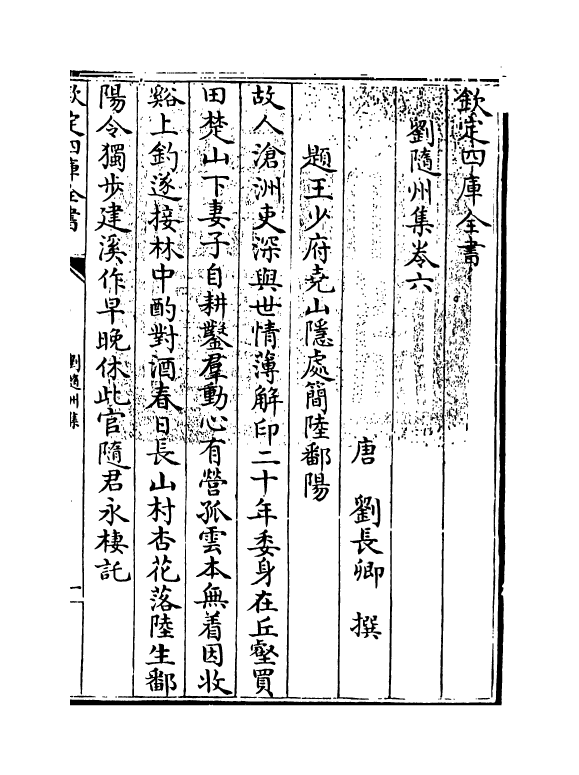 欽定四庫全書
劉隨州集卷六
唐 劉長卿 撰
題王少府堯山隱處簡陸鄱陽
故人滄洲吏深與世情薄解印二十年委身在丘壑買
田楚山下妻子自耕鑿羣動心有營孤雲本無着因收
谿上釣遂接林中酌對酒春日長山村杏花落陸生鄱
陽令獨步建溪作早晚休此官隨君永棲託
欽定四庫全書
劉隨州集
一